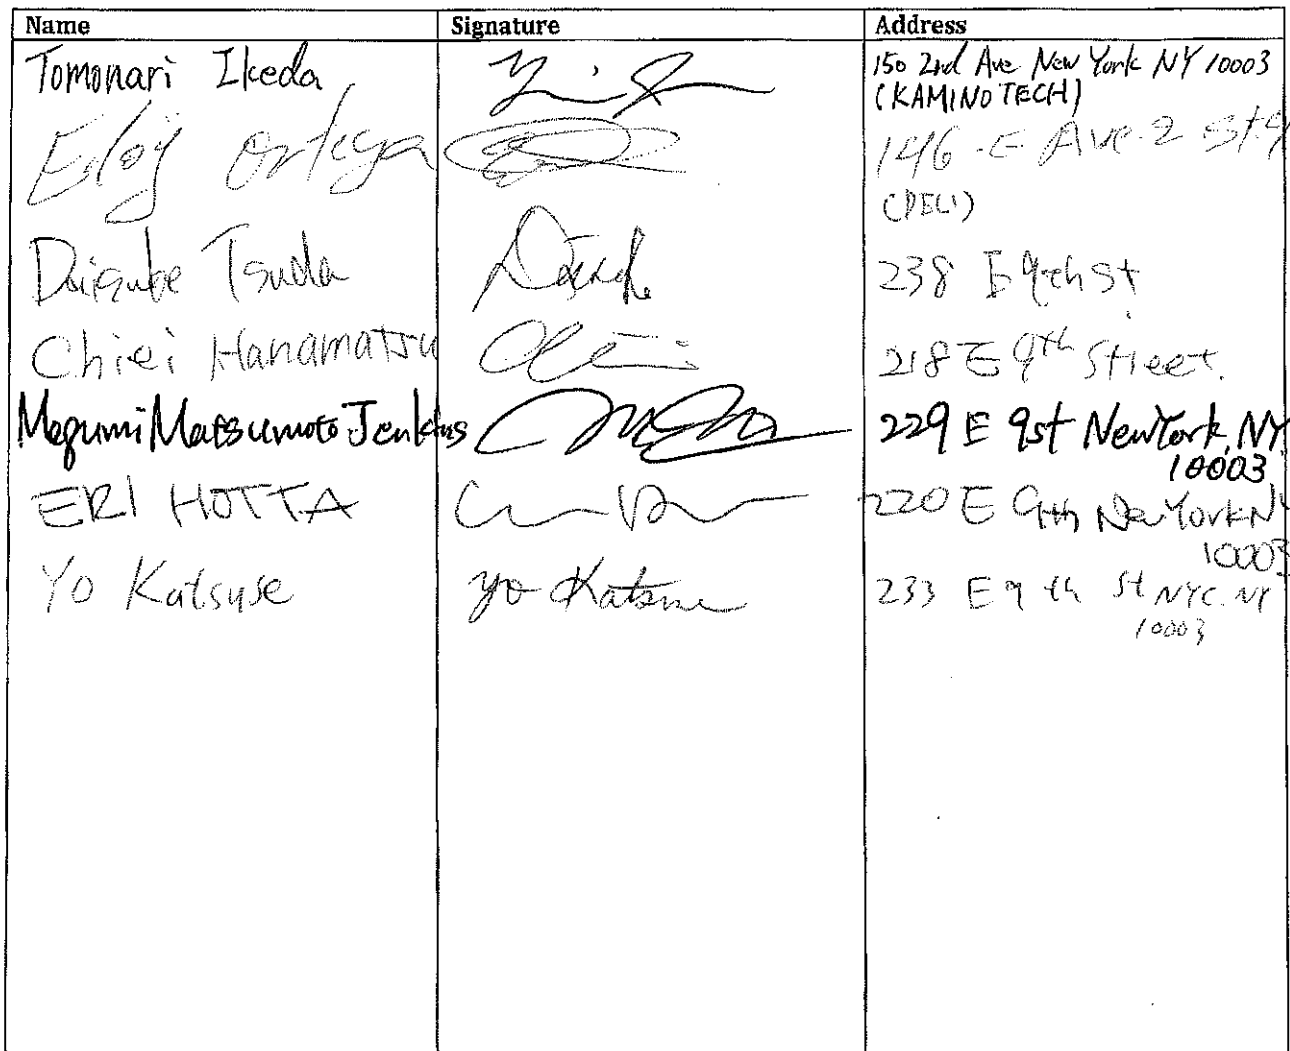 Name Signature Address
Tomonari Ikeda 150 2nd Ave New York NY 10003
(KAMINO TECH)
Eloy Ortega 146 - E Ave 2 St 9
(DELI)
Daisuke Tsuda 238 E 9th St
Chiei Hanamatsu 218 E 9th Street.
Megumi Matsumoto Jenkins 229 E 9st New York, NY
10003
ERI HOTTA 220 E 9th New York NY
10003
Yo Katsuse Yo Katsuse 233 E 9th St NYC. NY
10003